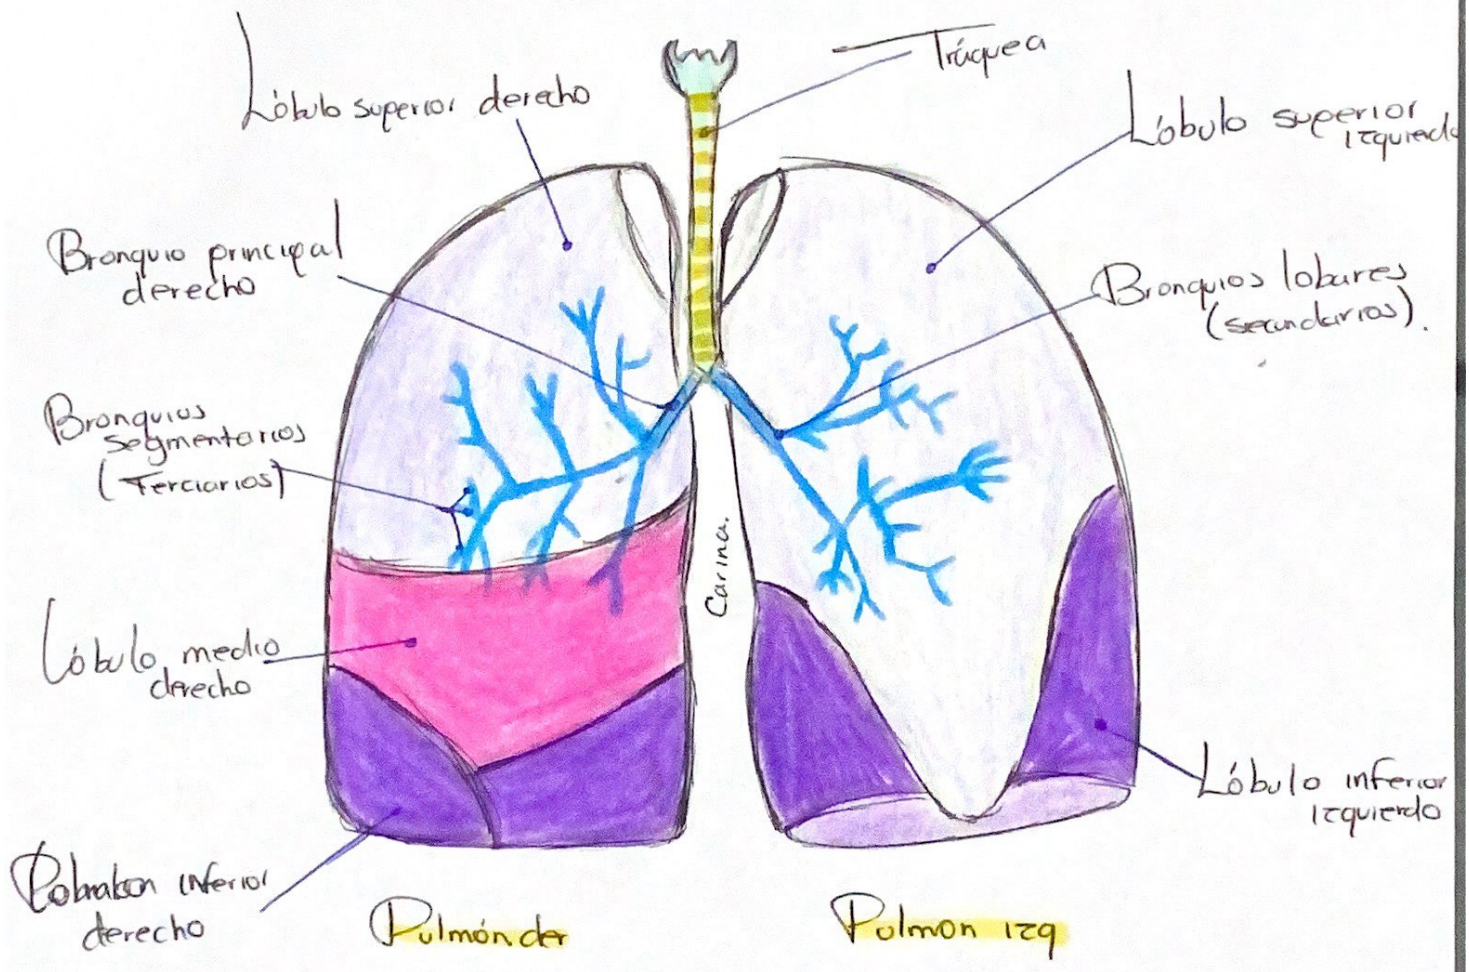 Tráquea
Lóbulo superior derecho
Lóbulo superior
izquierdo
Bronquio principal
derecho
Bronquios lobares
(secundarios).
Bronquios
segmentarios
(Terciarios)
Carina.
Lóbulo medio
derecho
Lóbulo inferior
izquierdo
inferior
derecho
Pulmón der
Pulmon izq